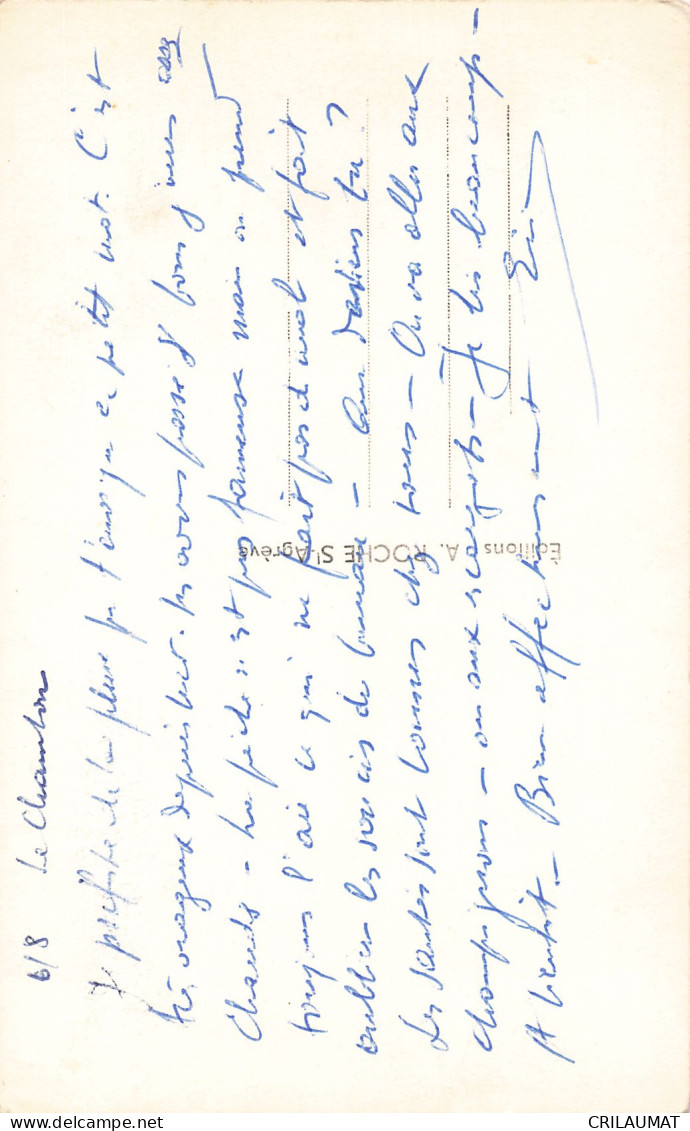 6/8 Le Chambon
Je profite de la pluie pr t'envoyer ce petit mot. C'est
très orageux depuis hier. Ns avons passé 8 jours
chauds - La pêche n'est pas fameuse mais on prend
toujours l'air ce qui ne fait pas de mal et fait
oublier les soucis de - Que deviens tu ?
Les santés sont bonnes chez nous - On va aller aux
champignons - ou aux escargots - Je lis beaucoup -
A bientôt - Bien affectueusement
Editions A. ROCHE St-Agrève
CRILAUMAT